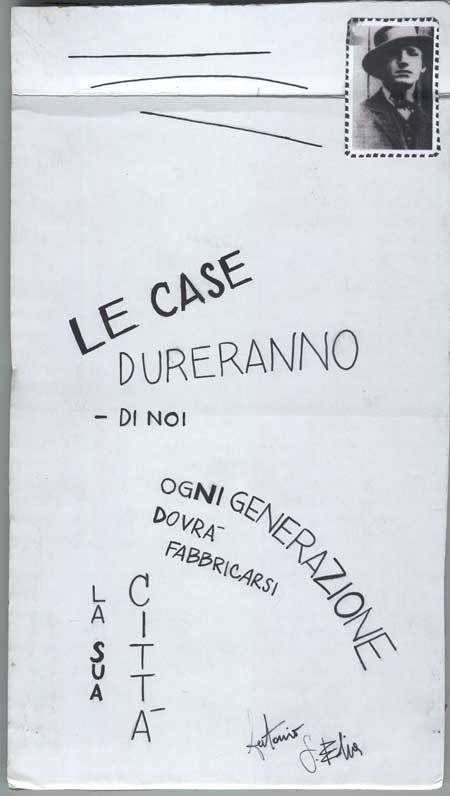 LE CASE
DURERANNO
- DI NOI
OGNI GENERAZIONE
DOVRÀ
FABBRICARSI
LA SUA
CITTÀ
Antonio S. Elia